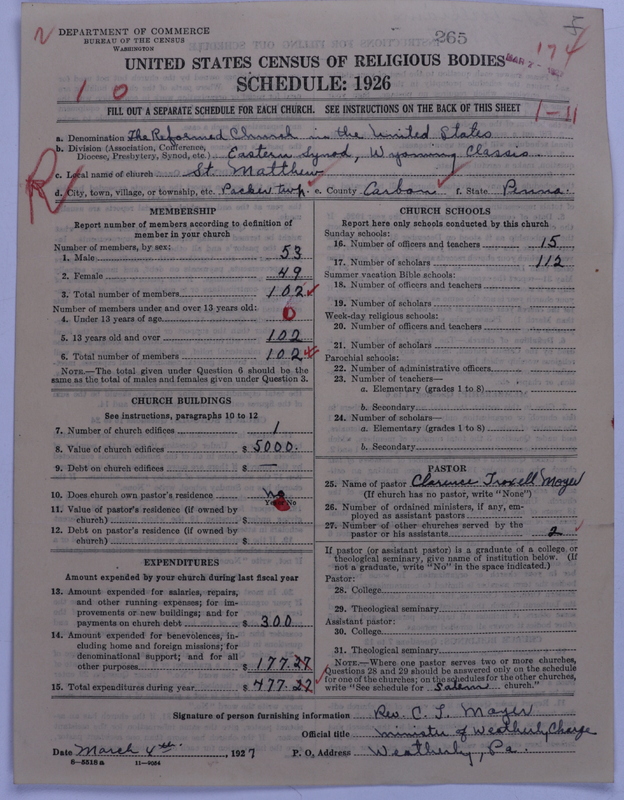 DEPARTMENT OF COMMERCE
BUREAU OF THE CENSUS
WASHINGTON
265
174
UNITED STATES CENSUS OF RELIGIOUS BODIES
SCHEDULE: 1926
1 0
1-11
FILL OUT A SEPARATE SCHEDULE FOR EACH CHURCH. SEE INSTRUCTIONS ON THE BACK OF THIS SHEET
a. Denomination The Reformed Church in the United States
b. Division (Association, Conference, Diocese, Presbytery, Synod, etc.) Eastern Synod, Wyoming Classis
c. Local name of church St. Matthew
R
d. City, town, village, or township, etc. Packer Twp. e. County Carbon f. State Penna.
MEMBERSHIP
Report number of members according to definition of
member in your church
Number of members, by sex:
1. Male 53
2. Female 49
3. Total number of members 102
Number of members under and over 13 years old:
4. Under 13 years of age 0
5. 13 years old and over 102
6. Total number of members 102
NOTE.—The total given under Question 6 should be the
same as the total of males and females given under Question 3.
CHURCH BUILDINGS
See instructions, paragraphs 10 to 12
7. Number of church edifices 1
8. Value of church edifices $ 5000.
9. Debt on church edifices $ —
10. Does church own pastor's residence no
Yes or No
11. Value of pastor's residence (if owned by
church) $
12. Debt on pastor's residence (if owned by
church) $
EXPENDITURES
Amount expended by your church during last fiscal year
13. Amount expended for salaries, repairs,
and other running expenses; for im-
provements or new buildings; and for
payments on church debt $ 300
14. Amount expended for benevolences, in-
cluding home and foreign missions; for
denominational support; and for all
other purposes $ 177.27
15. Total expenditures during year $ 477.27
CHURCH SCHOOLS
Report here only schools conducted by this church
Sunday schools:
16. Number of officers and teachers 15
17. Number of scholars 112
Summer vacation Bible schools:
18. Number of officers and teachers
19. Number of scholars
Week-day religious schools:
20. Number of officers and teachers
21. Number of scholars
Parochial schools:
22. Number of administrative officers
23. Number of teachers—
a. Elementary (grades 1 to 8)
b. Secondary
24. Number of scholars—
a. Elementary (grades 1 to 8)
b. Secondary
PASTOR
25. Name of pastor Clarence Troxell Moyer
(If church has no pastor, write "None")
26. Number of ordained ministers, if any, em-
ployed as assistant pastors
27. Number of other churches served by the
pastor or his assistants 2
If pastor (or assistant pastor) is a graduate of a college or
theological seminary, give name of institution below. (If
not a graduate, write "No" in the space indicated.)
Pastor:
28. College
29. Theological seminary
Assistant pastor:
30. College
31. Theological seminary
NOTE.—Where one pastor serves two or more churches,
Questions 28 and 29 should be answered only on the schedule
for one of the churches; on the schedules for the other churches,
write "See schedule for Salem church."
Signature of person furnishing information Rev. C. T. Moyer
Official title Minister of Weatherly Charge
Date March 4th, 1927 P. O. Address Weatherly, Pa.
8—5518a 11—9054